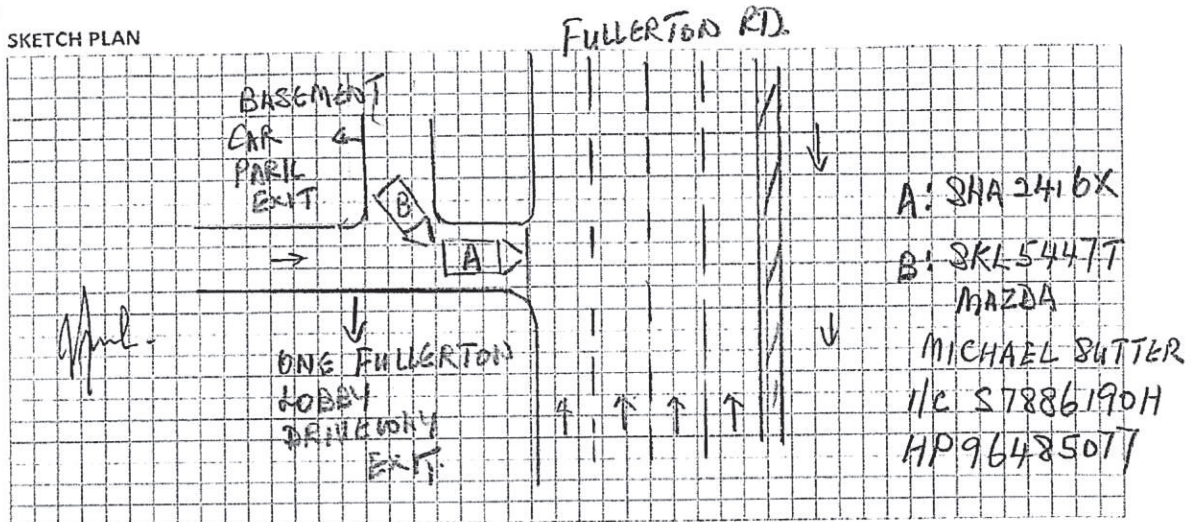 SKETCH PLAN
FULLERTON RD.
BASEMENT
CAR
PARK
EXIT
B
A
ONE FULLERTON
LOBBY
DRIVEWAY
EXIT.
A: SHA 2416X
B: SKL5447T
MAZDA
MICHAEL SUTTER
I/C S7886190H
HP 96485077